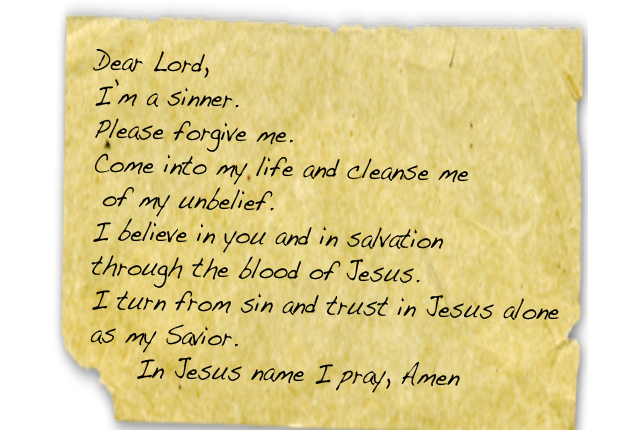 Dear Lord,
I'm a sinner.
Please forgive me.
Come into my life and cleanse me
of my unbelief.
I believe in you and in salvation
through the blood of Jesus.
I turn from sin and trust in Jesus alone
as my Savior.
In Jesus name I pray, Amen